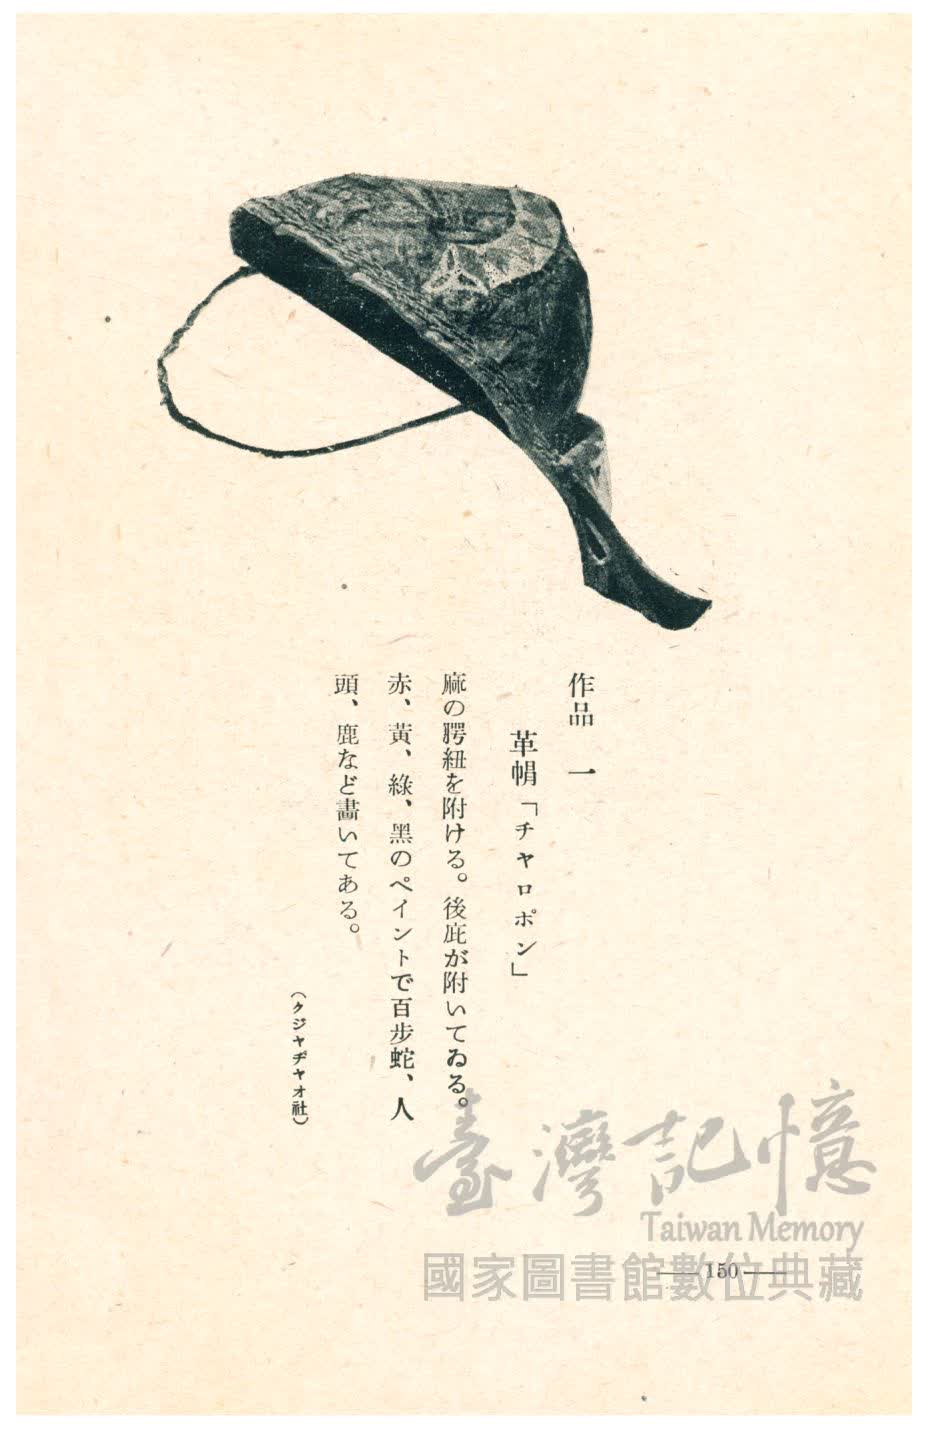 作品 一
革帽「チャロポン」
麻の腭紐を附ける。後庇が附いてゐる。
赤、黃、綠、黑のペイントで百步蛇、人
頭、鹿など畵いてある。
(クジャヂャオ社)
臺灣記憶
Taiwan Memory
國家圖書館數位典藏
150